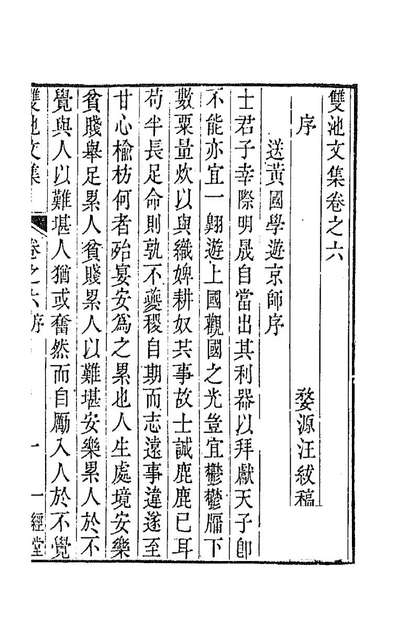 雙池文集卷之六
婺源汪紱稿
序
送黃國學遊京師序
士君子幸際明晟自當出其利器以拜獻天子卽
不能亦宜一翺遊上國觀國之光豈宜鬱鬱牖下
數粟量炊以與織婢耕奴共事故士誠鹿鹿已耳
苟半長足命則孰不夔稷自期而志遠事違遂至
甘心楡枋何者殆宴安爲之累也人生處境安樂
貧賤舉足累人貧賤累人以難堪安樂累人於不
覺與人以難堪人猶或奮然而自厲入人於不覺
雙池文集
卷之六序
一
一經堂